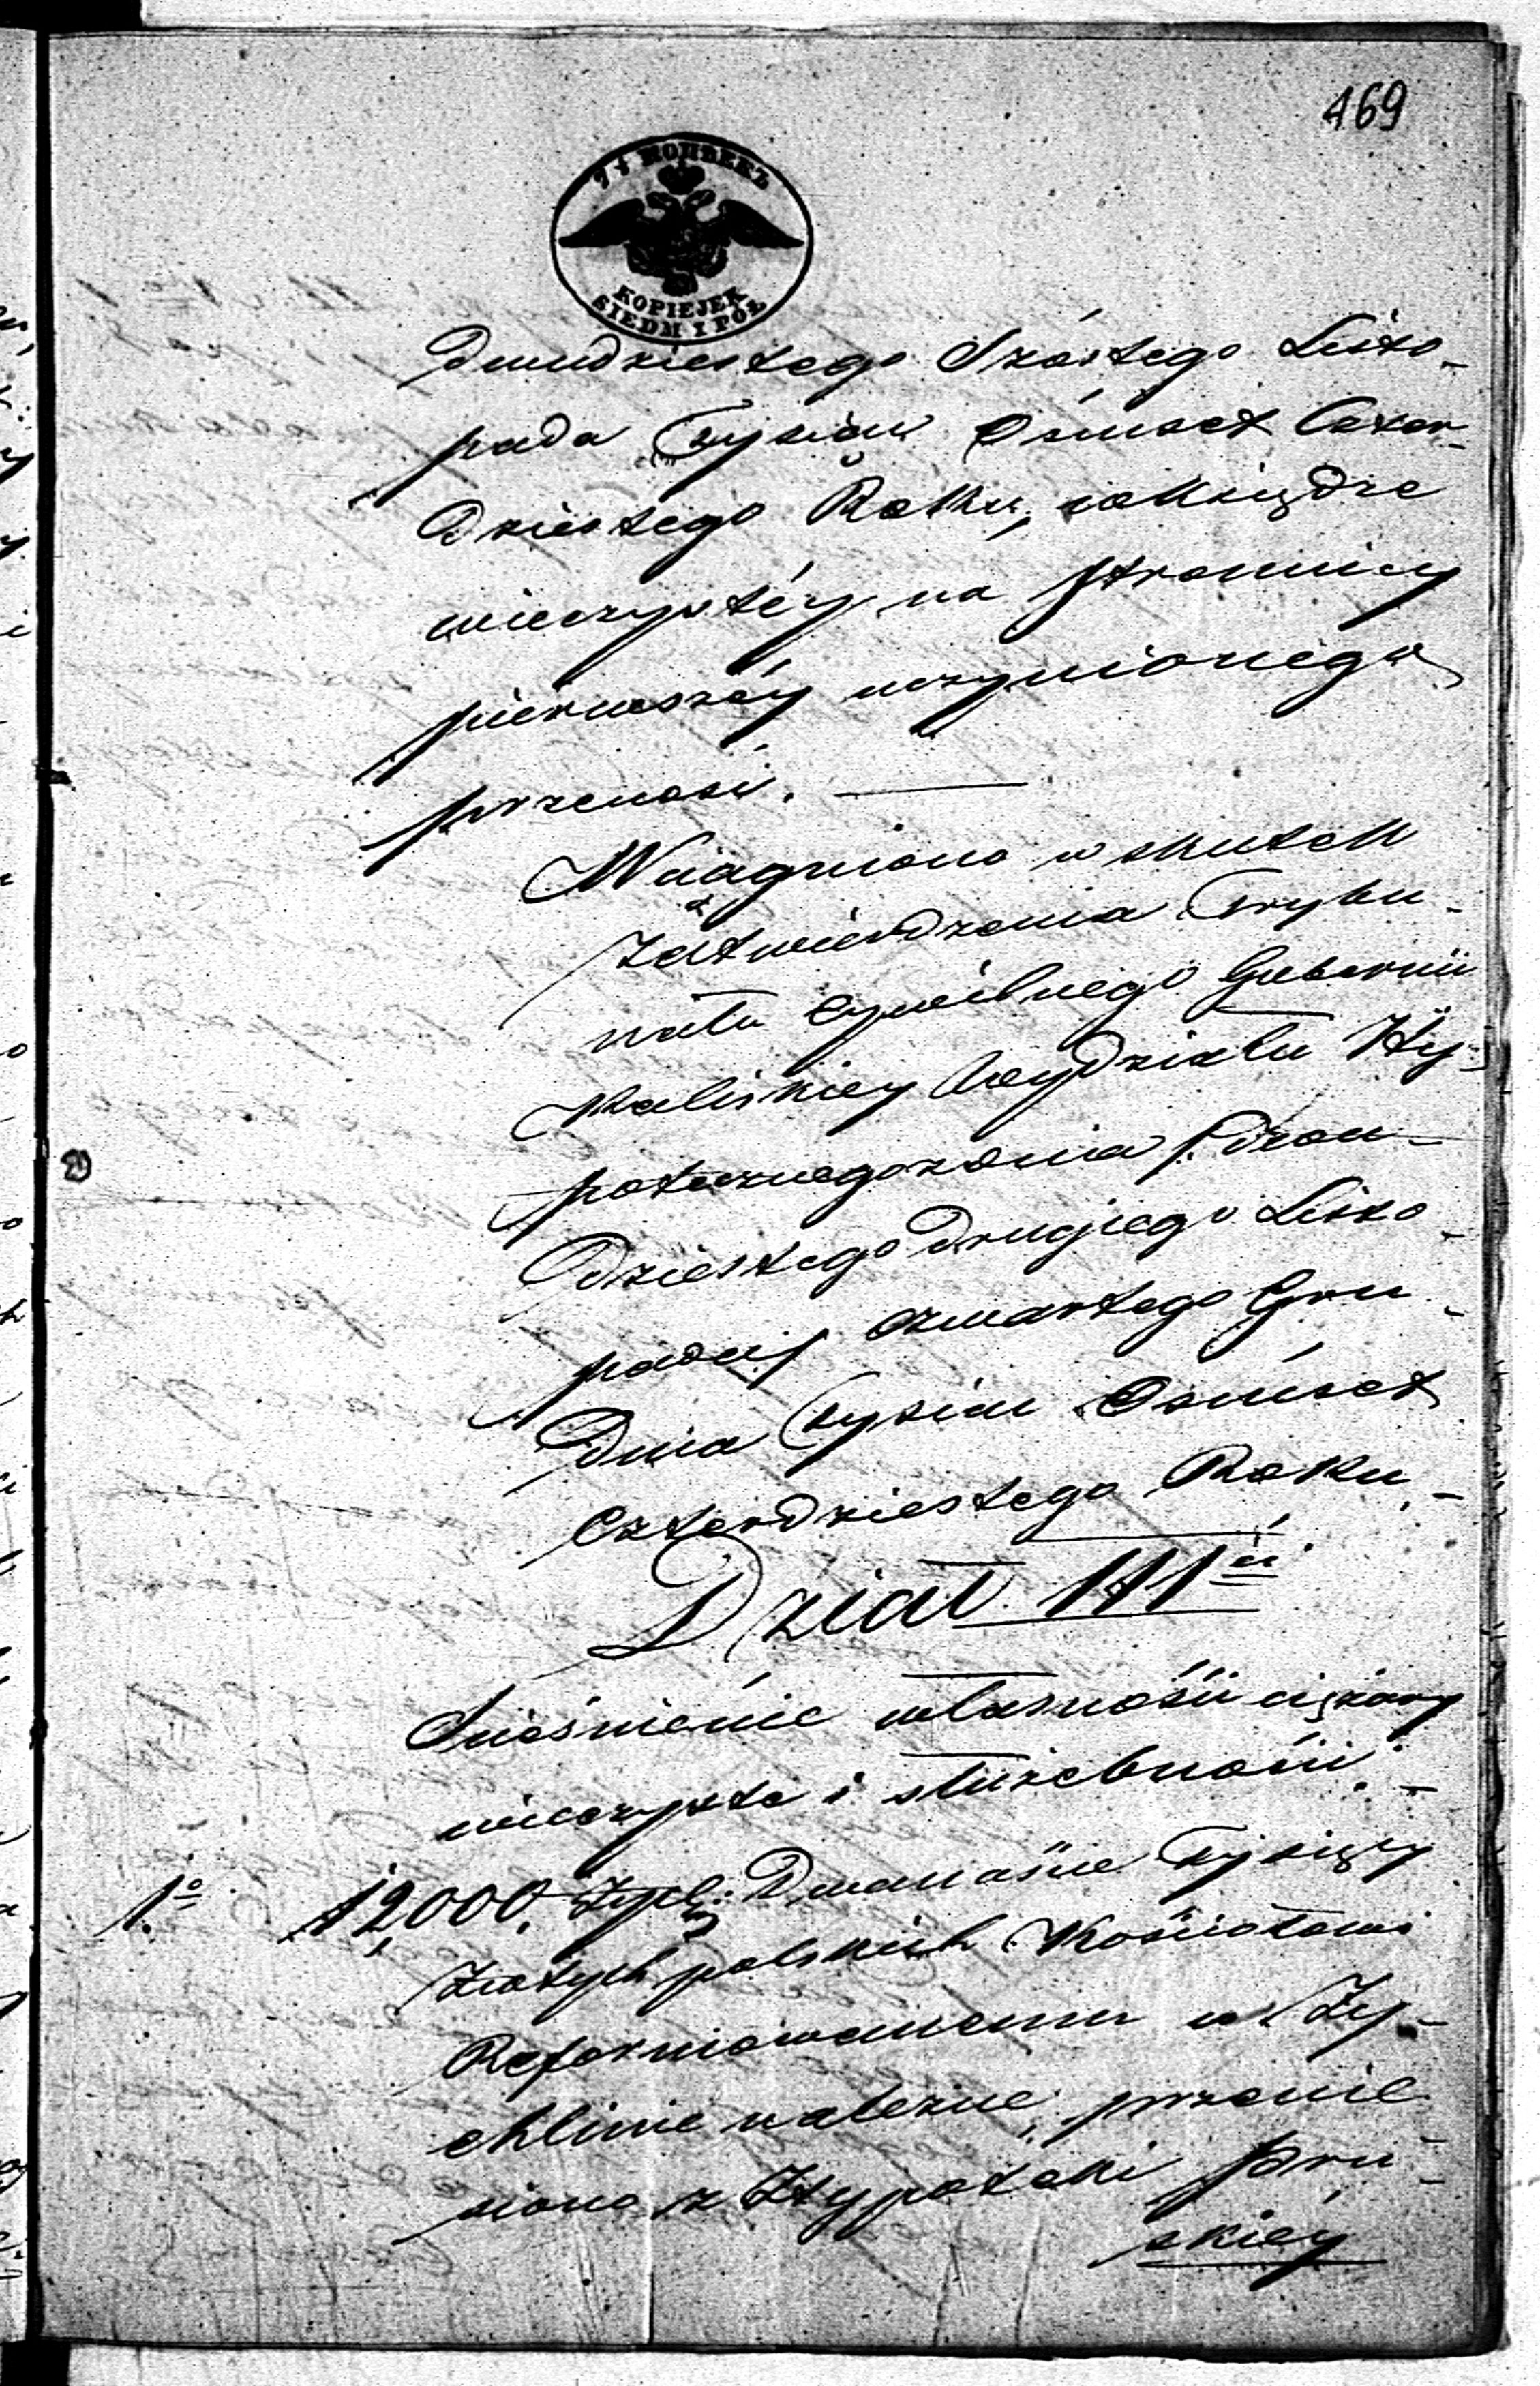 469
7½ КОПѢЕКЪ
KOPIEJEK
SIEDM I PÓŁ
Dwudziestego Szóstego Listo-
pada Tysiąc Ośmset Czter-
dziestego Roku, w Księdze
wieczystéy na stronnicy
pierwszéy uczynionego
przenosi. —
Wciągniono w skutek
Zatwierdzenia Trybu-
nału Cywilnego Gubernii
Kaliskiey Wydziału Hy-
potecznego z dnia
dziestego drugiego Listo-
pada/ czwartego Gru-
dnia Tysiąc Ośmset
Czterdziestego Roku. -
Dział III ci
Ścieśnienie własności ciężary
wieczyste i służebności. -
1o 12,000. Złpol: Dwanaście Tysięcy
Złotych polskich Kościołowi
Reformowanemu w Ży-
chlinie należne, przenie
siono z Hypoteki Pru-
skiéy